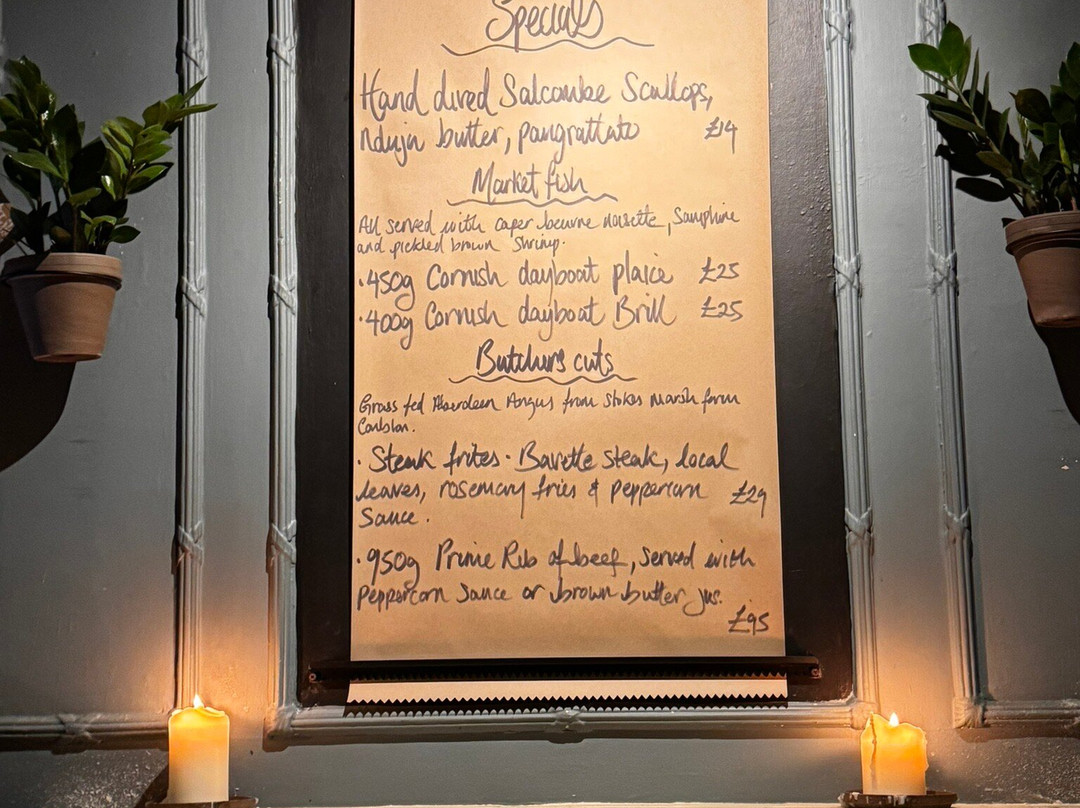 Specials
Hand dived Salcombe Scallops,
Nduja butter, pangrattato £14
Market fish
All served with caper beurre noisette, Samphire
and pickled brown shrimp.
· 450g Cornish dayboat plaice £25
· 400g Cornish dayboat Brill £25
Butchers cuts
Grass fed Aberdeen Angus from Stokes Marsh farm
· Steak frites · Bavette steak, local
leaves, rosemary fries & peppercorn £29
Sauce.
· 950g Prime Rib of beef, served with
peppercorn sauce or brown butter jus.
£95